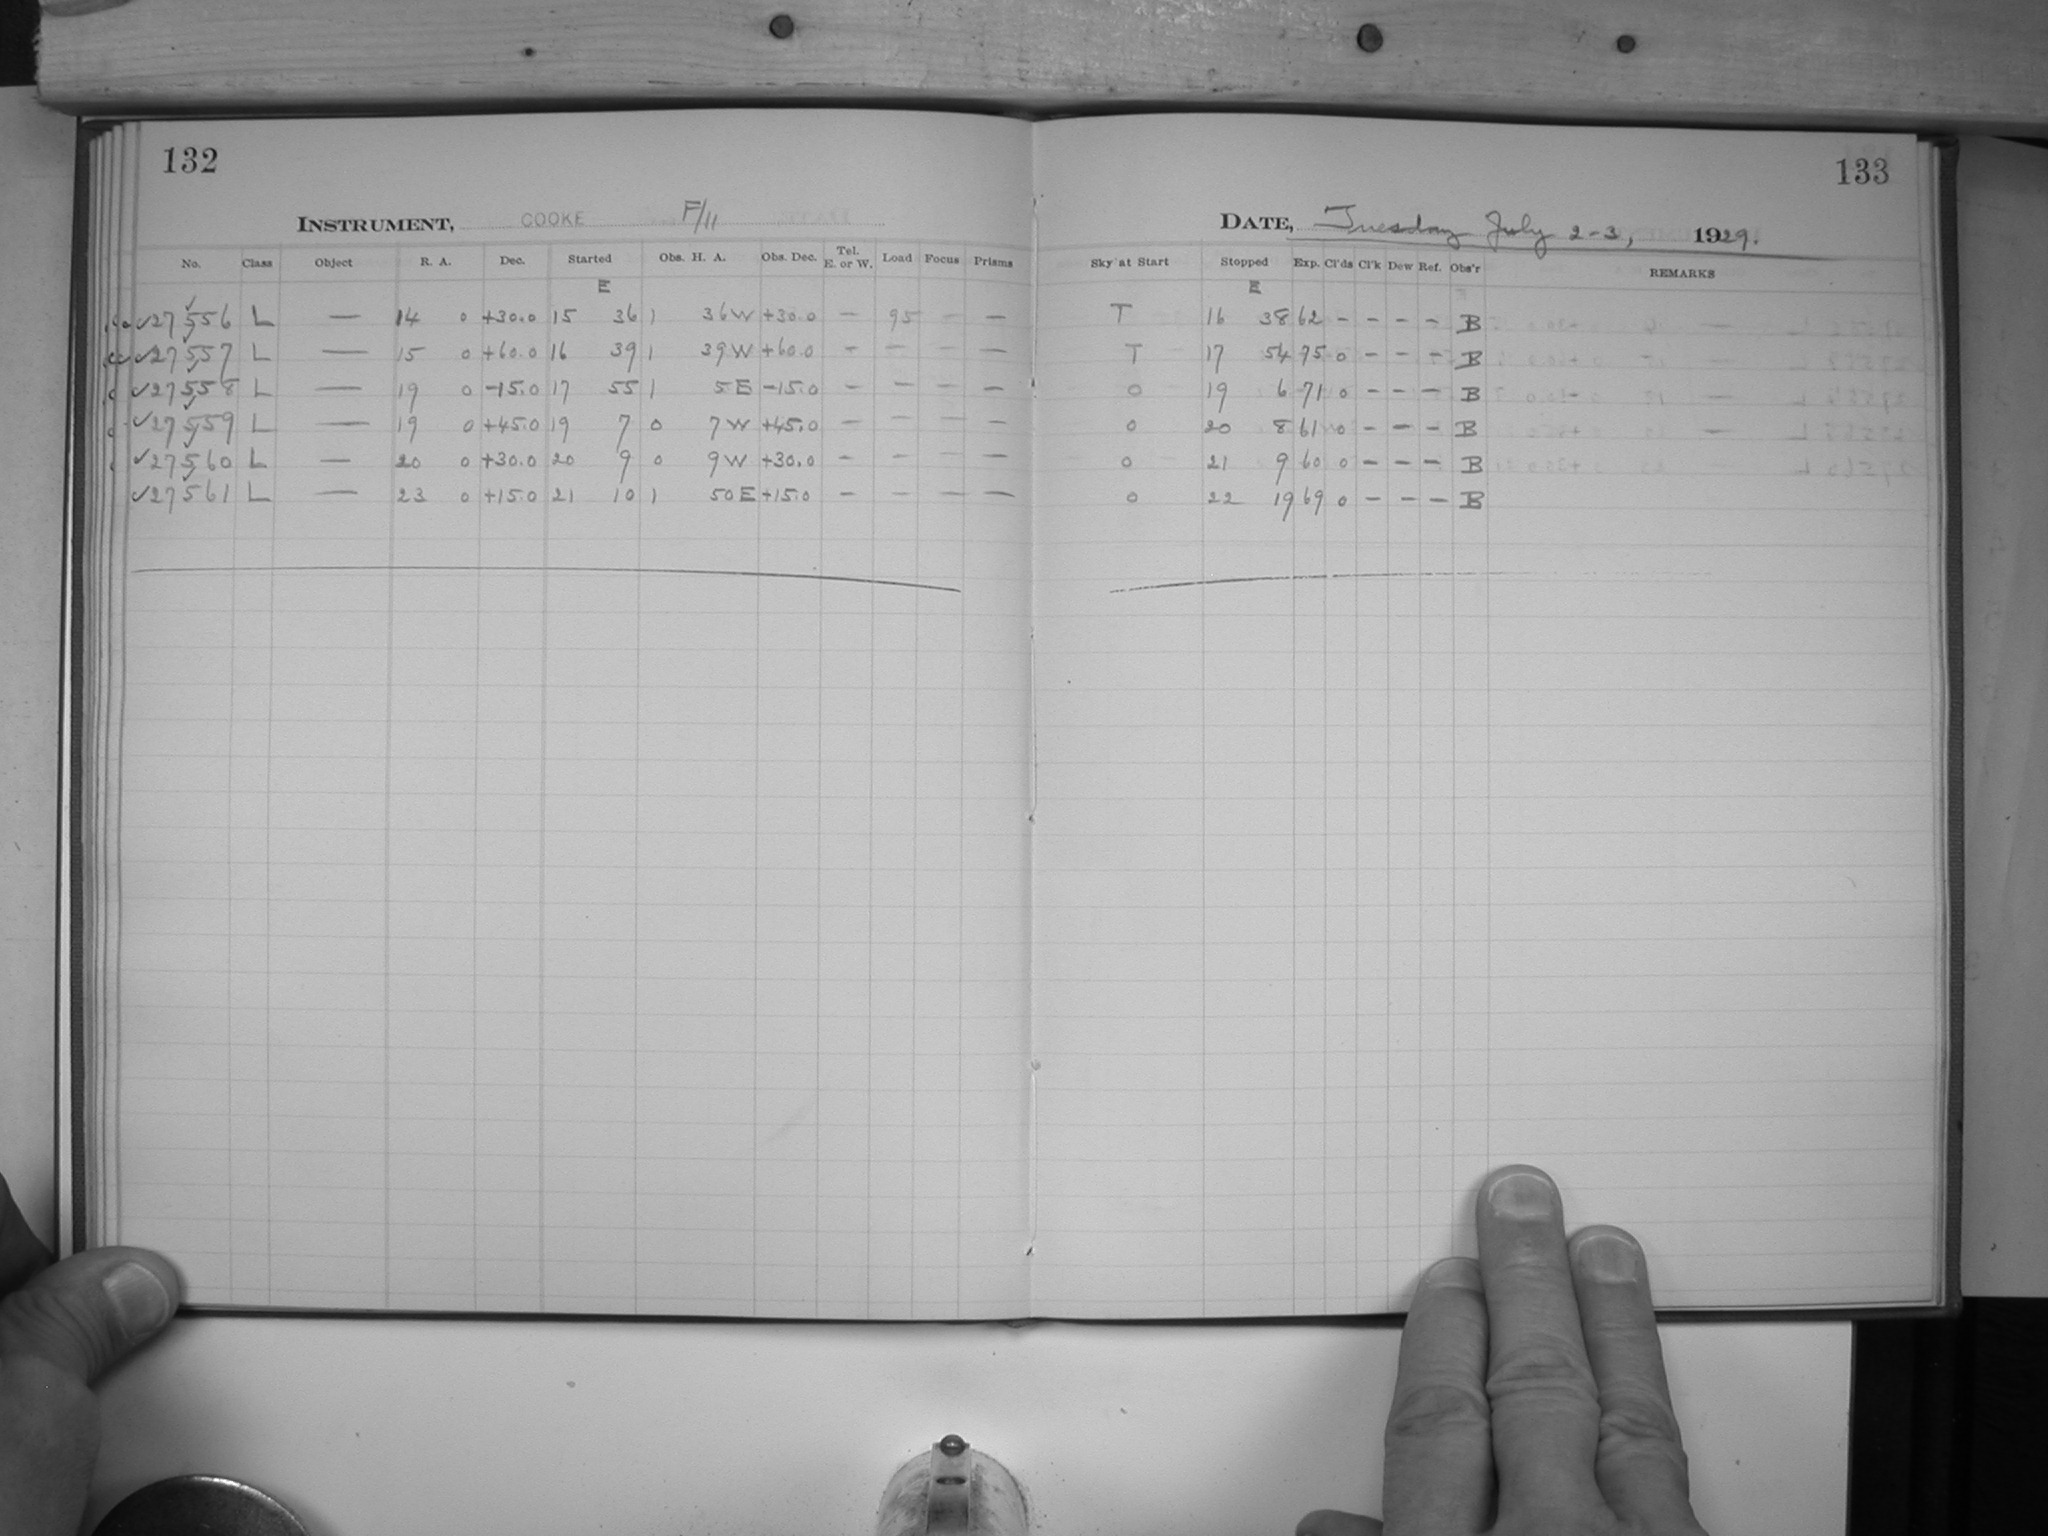 132
INSTRUMENT, COOKE F/11
No. Class Object R. A. Dec. Started Obs. H. A. Obs. Dec. Tel. E. or W. Load Focus Prisms
E
✓27556 L — 14 0 +30.0 15 36 1 36 W +30.0 — 95 — —
✓27557 L — 15 0 +60.0 16 39 1 39 W +60.0 — — — —
✓27558 L — 19 0 -15.0 17 55 1 5 E -15.0 — — — —
✓27559 L — 19 0 +45.0 19 7 0 7 W +45.0 — — — —
✓27560 L — 20 0 +30.0 20 9 0 9 W +30.0 — — — —
✓27561 L — 23 0 +15.0 21 10 1 50 E +15.0 — — — —
133
DATE, Tuesday July 2-3, 1929.
Sky at Start Stopped Exp. Cl'ds Cl'k Dew Ref. Obs'r REMARKS
E
T 16 38 62 — — — — B
T 17 54 75 0 — — — B
0 19 6 71 0 — — — B
0 20 8 61 0 — — — B
0 21 9 60 0 — — — B
0 22 19 69 0 — — — B